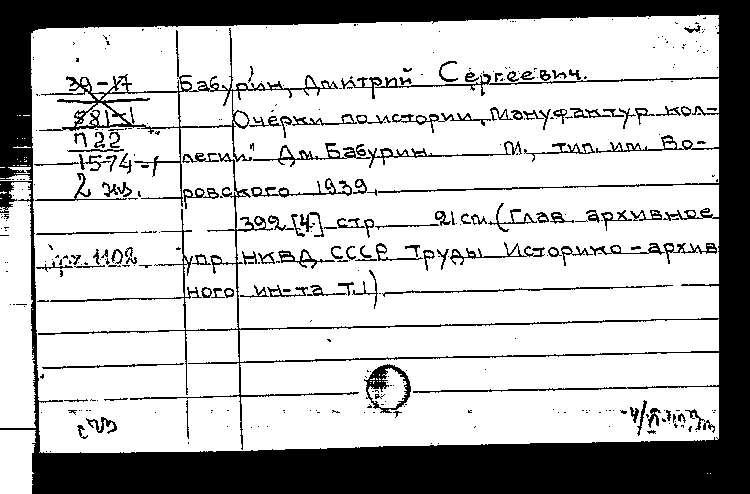 39-17 Бабурин, Дмитрий Сергеевич.
881-1 Очерки по истории „Мануфактур кол-
П22
1574-1 легии." Дм. Бабурин. М., тип. им. Во-
2 экз. ровского 1939.
392 [4] стр. 21 см. (Глав. архивное
Арх. 1102 упр. НКВД СССР Труды Историко-архив
ного ин-та Т.1).